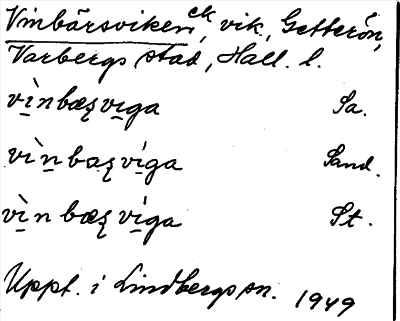 Vinbärsviken ek, vik, Getterön,
Varbergs stad, Hall. l.
vìnbæʂviga Sa.
vìnbaʂvíga Sand.
vìnbæʂvíga St.
Uppt. i Lindbergs sn. 1949